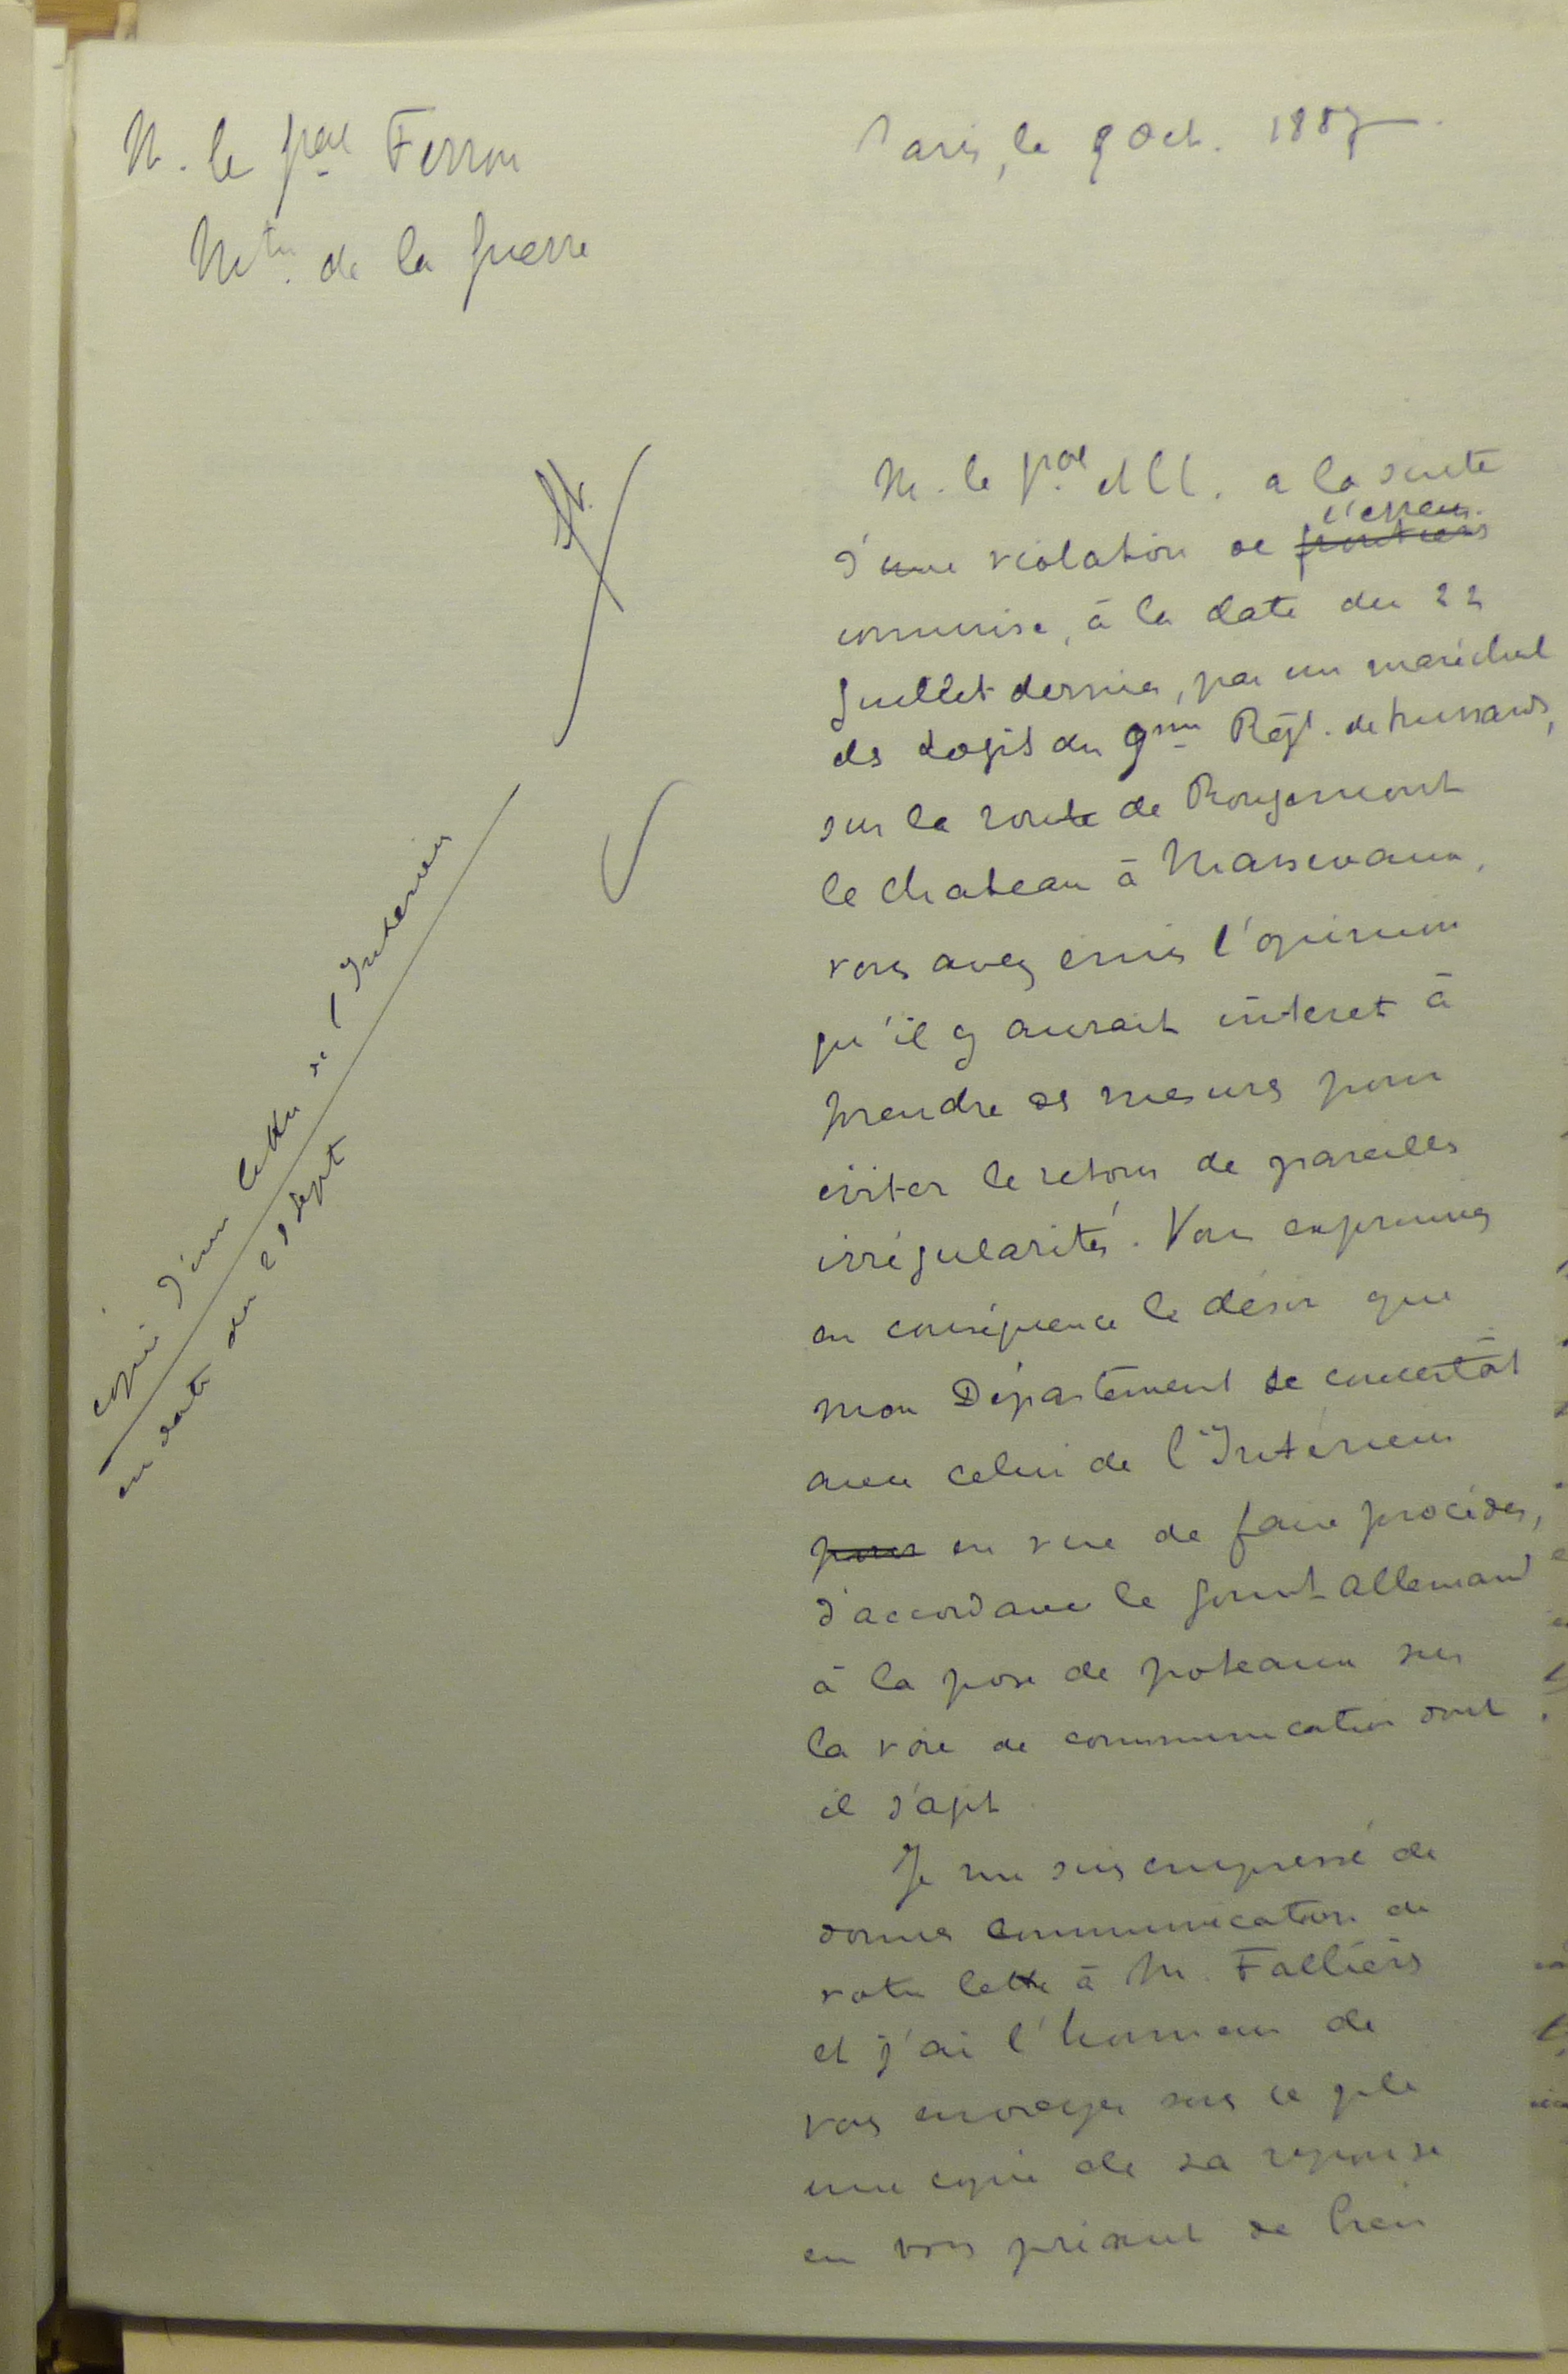 M. le gal Ferron
Mtre. de la guerre
Paris, le 9 Oct. 1887
M. le gal et c. a la suite
d'une violation de frontière
commise, à la date du 22
Juillet dernier, par un maréchal
des Logis du 9me Régt. de hussards,
sur la route de Rougemont
le chateau à Massevaux,
vous avez émis l'opinion
qu'il y aurait intéret à
prendre des mesures pour
éviter le retour de pareilles
irrégularités. Vous exprimez
en conséquence le désir que
mon Département se concertât
avec celui de l'Intérieur
pour en vue de faire procéder,
d'accord avec le Gouvnt allemand
à la pose de poteaux sur
la voie de communication dont
il s'agit
Je me suis empressé de
donner communication de
votre lettre à M. Fallières
et j'ai l'honneur de
vous envoyer sous ce pli
une copie de sa réponse
en vous priant de bien
copie d'une lettre de l'Intérieur
en date du 29 sept